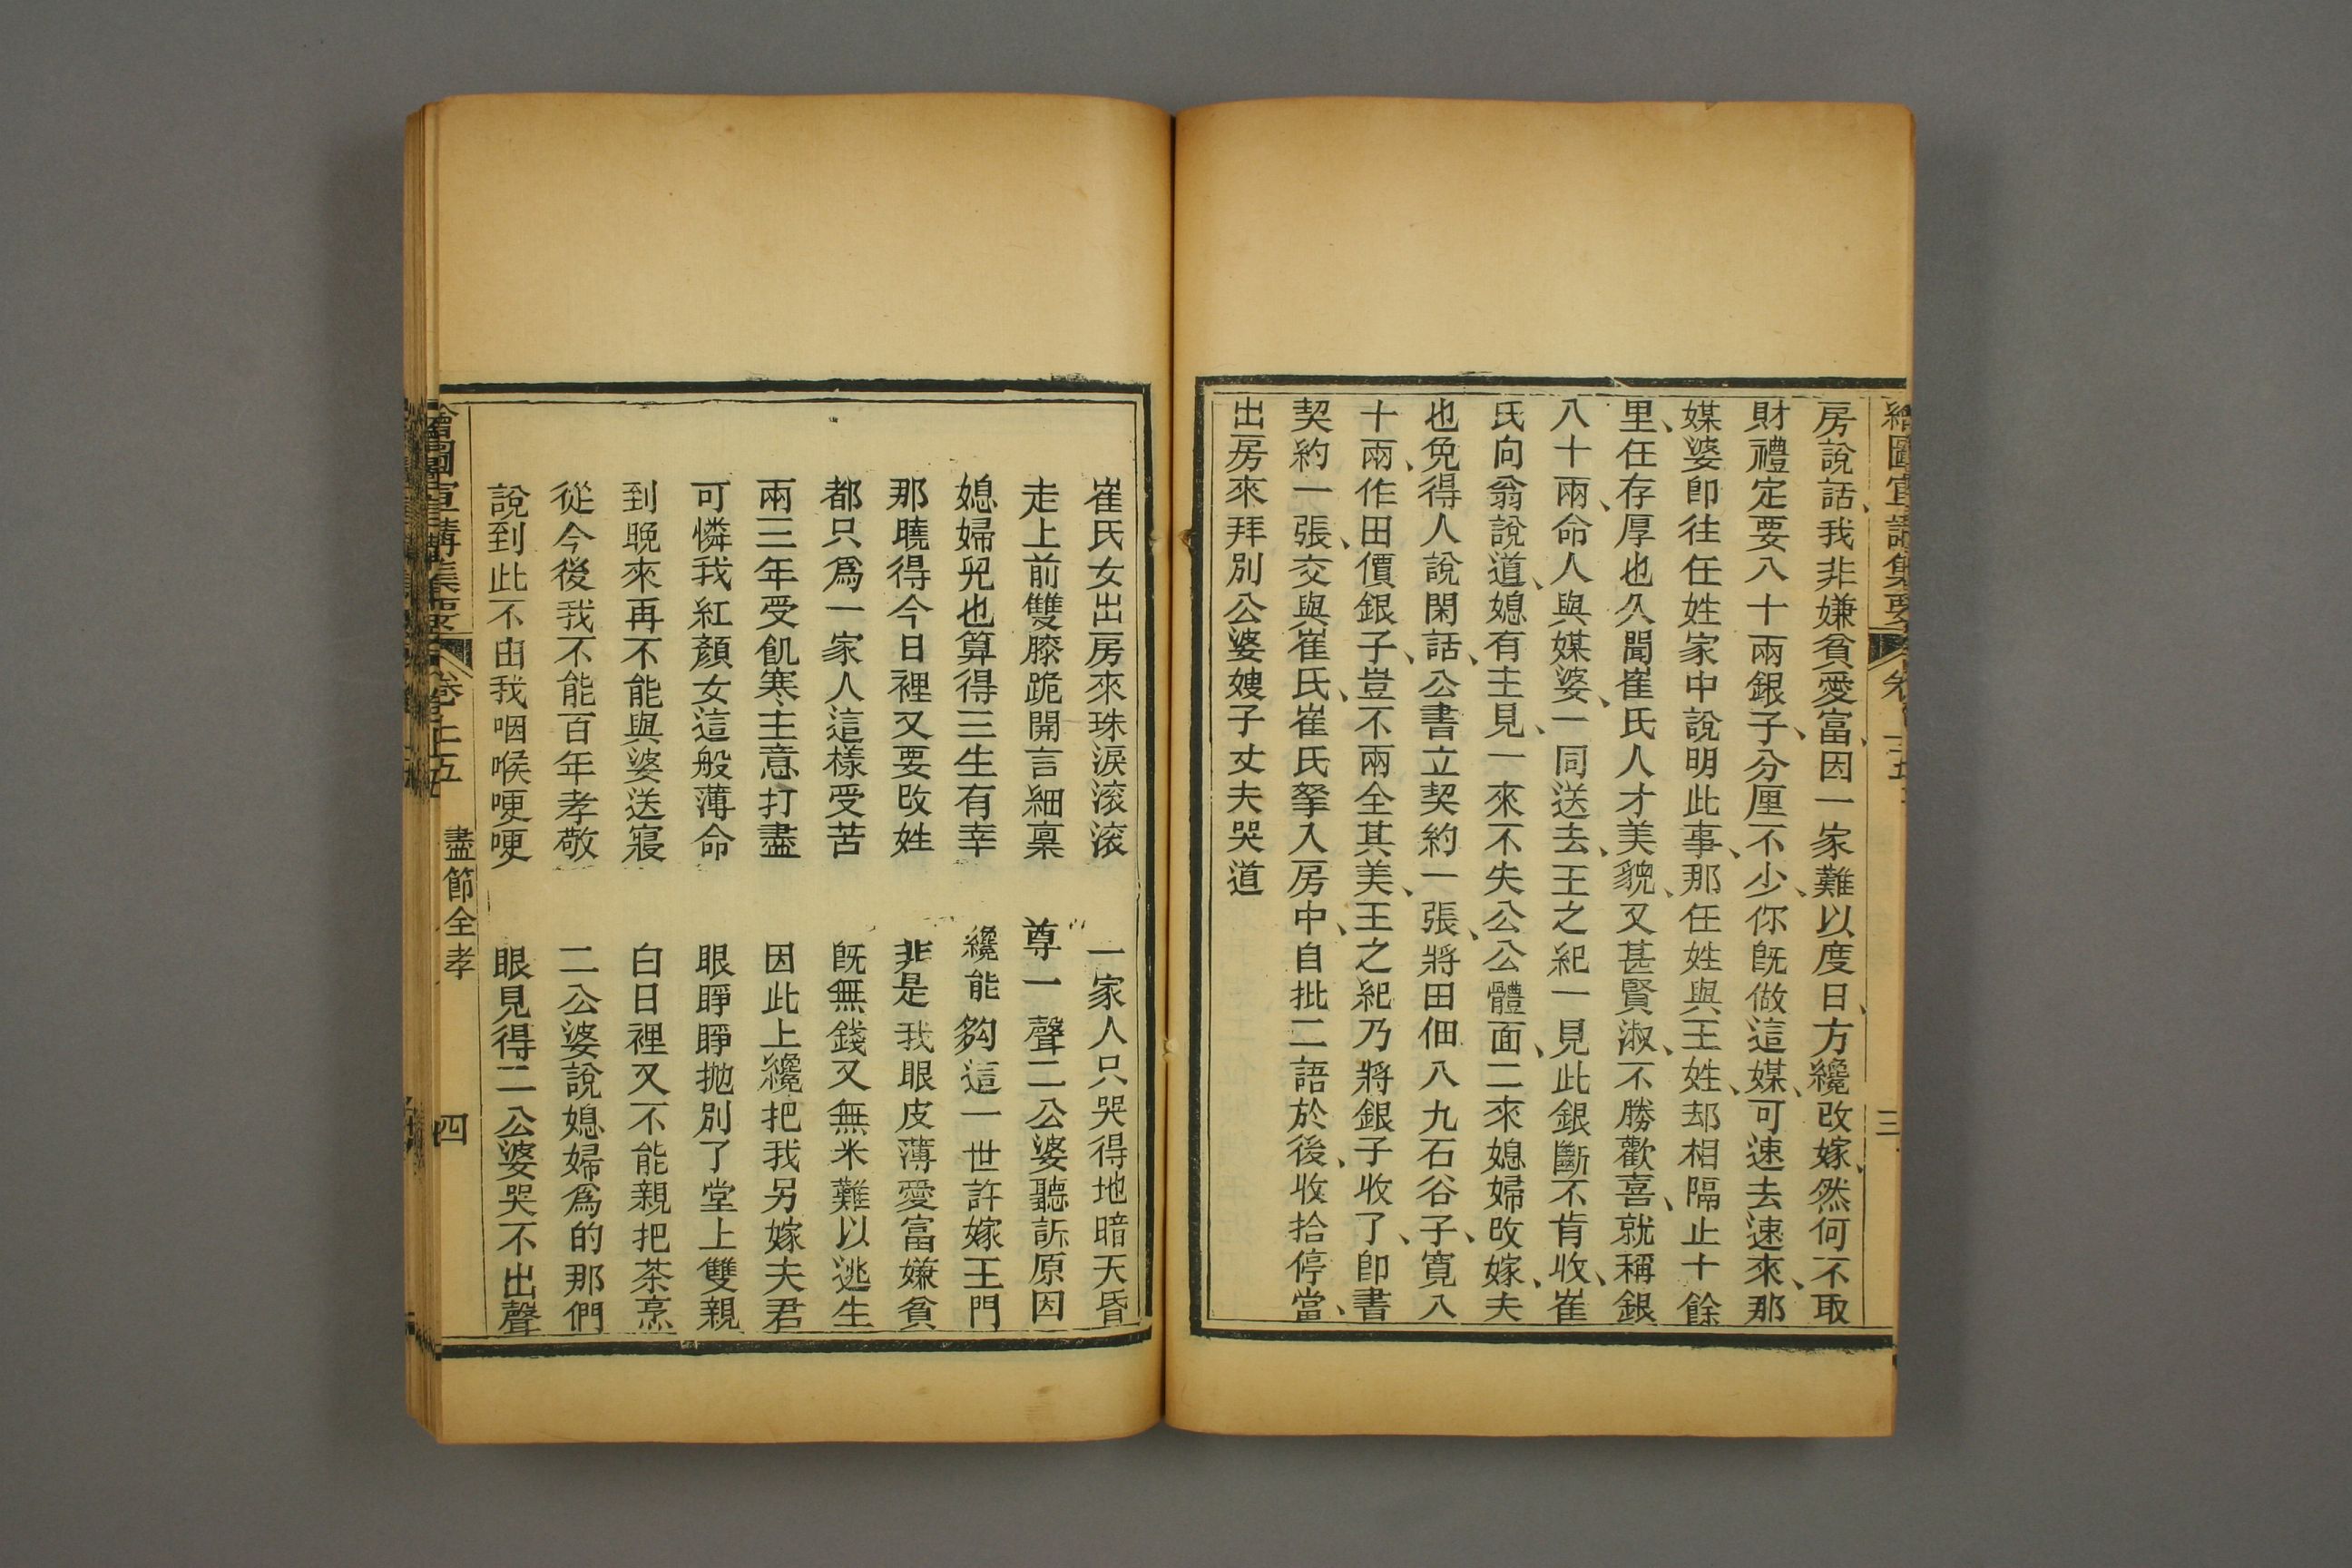 房說話、我非嫌貧愛富、因一家難以度日、方纔改嫁、然何不取
財禮定要八十兩銀子、分厘不少、你旣做這媒、可速去速來、那
媒婆卽往任姓家中說明此事、那任姓與王姓、却相隔止十餘
里、任存厚也久聞崔氏人才美貌、又甚賢淑、不勝歡喜、就稱銀
八十兩、命人與媒婆、一同送去、王之紀一見此銀斷不肯收、崔
氏向翁說道、媳有主見、一來不失公公體面、二來媳婦改嫁、夫
也免得人說閑話、公書立契約一張、將田佃八九石谷子、寬入
十兩、作田價銀子、豈不兩全其美、王之紀乃將銀子收了、卽書
契約一張、交與崔氏、崔氏拏入房中、自批二語於後、收拾停當、
出房來拜別公婆嫂子丈夫哭道
三
崔氏女出房來珠淚滚滚 一家人只哭得地暗天昏
走上前雙膝跪開言細稟 尊一聲二公婆聽訴原因
媳婦兒也算得三生有幸 纔能夠這一世許嫁王門
那曉得今日裡又要改姓 非是我眼皮薄愛富嫌貧
都只爲一家人這樣受苦 旣無錢又無米難以逃生
兩三年受飢寒主意打盡 因此上纔把我另嫁夫君
可憐我紅顏女這般薄命 眼睜睜抛別了堂上雙親
到晚來再不能與婆送寢 白日裡又不能親把茶烹
從今後我不能百年孝敬 二公婆說媳婦爲的那們
說到此不由我咽喉哽哽 眼見得二公婆哭不出聲
繪圖宣講集要 卷上五 盡節全孝 四